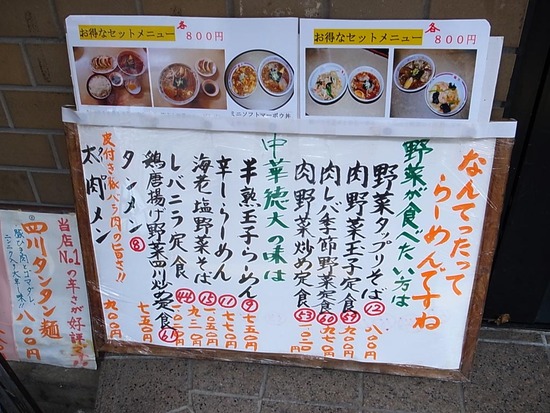 お得なセットメニュー 各 800円
ミニソフトマーボウ丼
お得なセットメニュー 各 800円
なんてったって
らーめんですね
野菜が食べたい方は
野菜タップリそば ⑫ 八〇〇円
肉野菜玉子定食
肉レバ季節野菜定食
肉野菜炒め定食
中華徳大の味は
半熟玉子らーめん ⑨ 七五〇円
辛しらーめん ⑪ 七七〇円
海老塩野菜そば ⑮ 九三〇円
レバニラ定食 ㊹
鶏唐揚げ野菜四川炒め定食
タンメン ⑧ 七五〇円
皮付き豚バラ肉の旨さ!!
太肉メン 九〇〇円
当店No.1の辛さが好評
四川タンタン麺 八〇〇円
豚ひき肉とゴマダレ